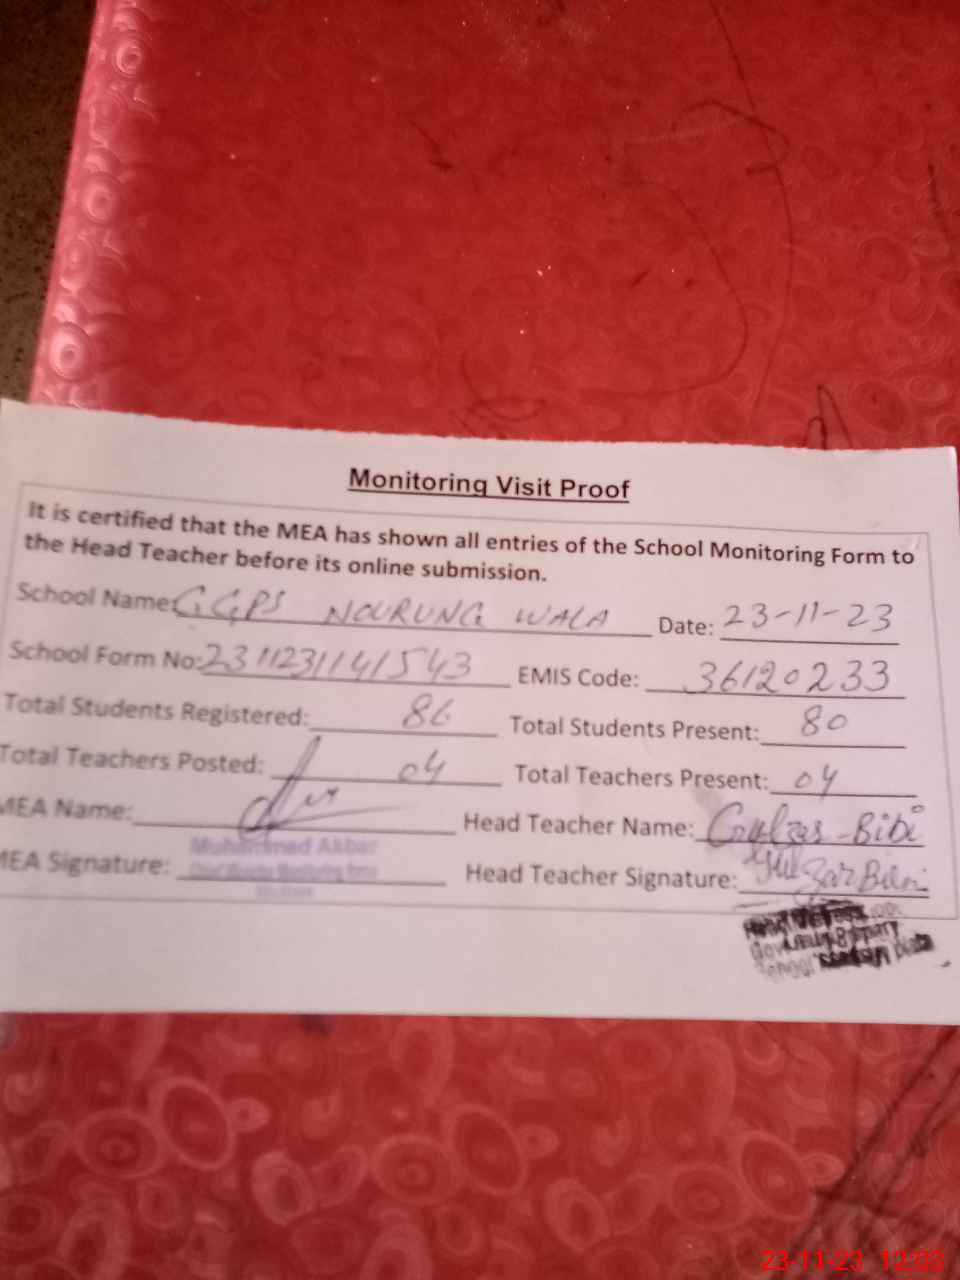 Monitoring Visit Proof
It is certified that the MEA has shown all entries of the School Monitoring Form to
the Head Teacher before its online submission.
School Name: GGPS NOURUNG WALA Date: 23-11-23
School Form No: 2311231141543 EMIS Code: 36120233
Total Students Registered: 86 Total Students Present: 80
Total Teachers Posted: 04 Total Teachers Present: 04
MEA Name: Head Teacher Name: Gulzar Bibi
Muhammad Akbar
MEA Signature: Head Teacher Signature: Gulzar Bibi
School
23-11-23 12:03